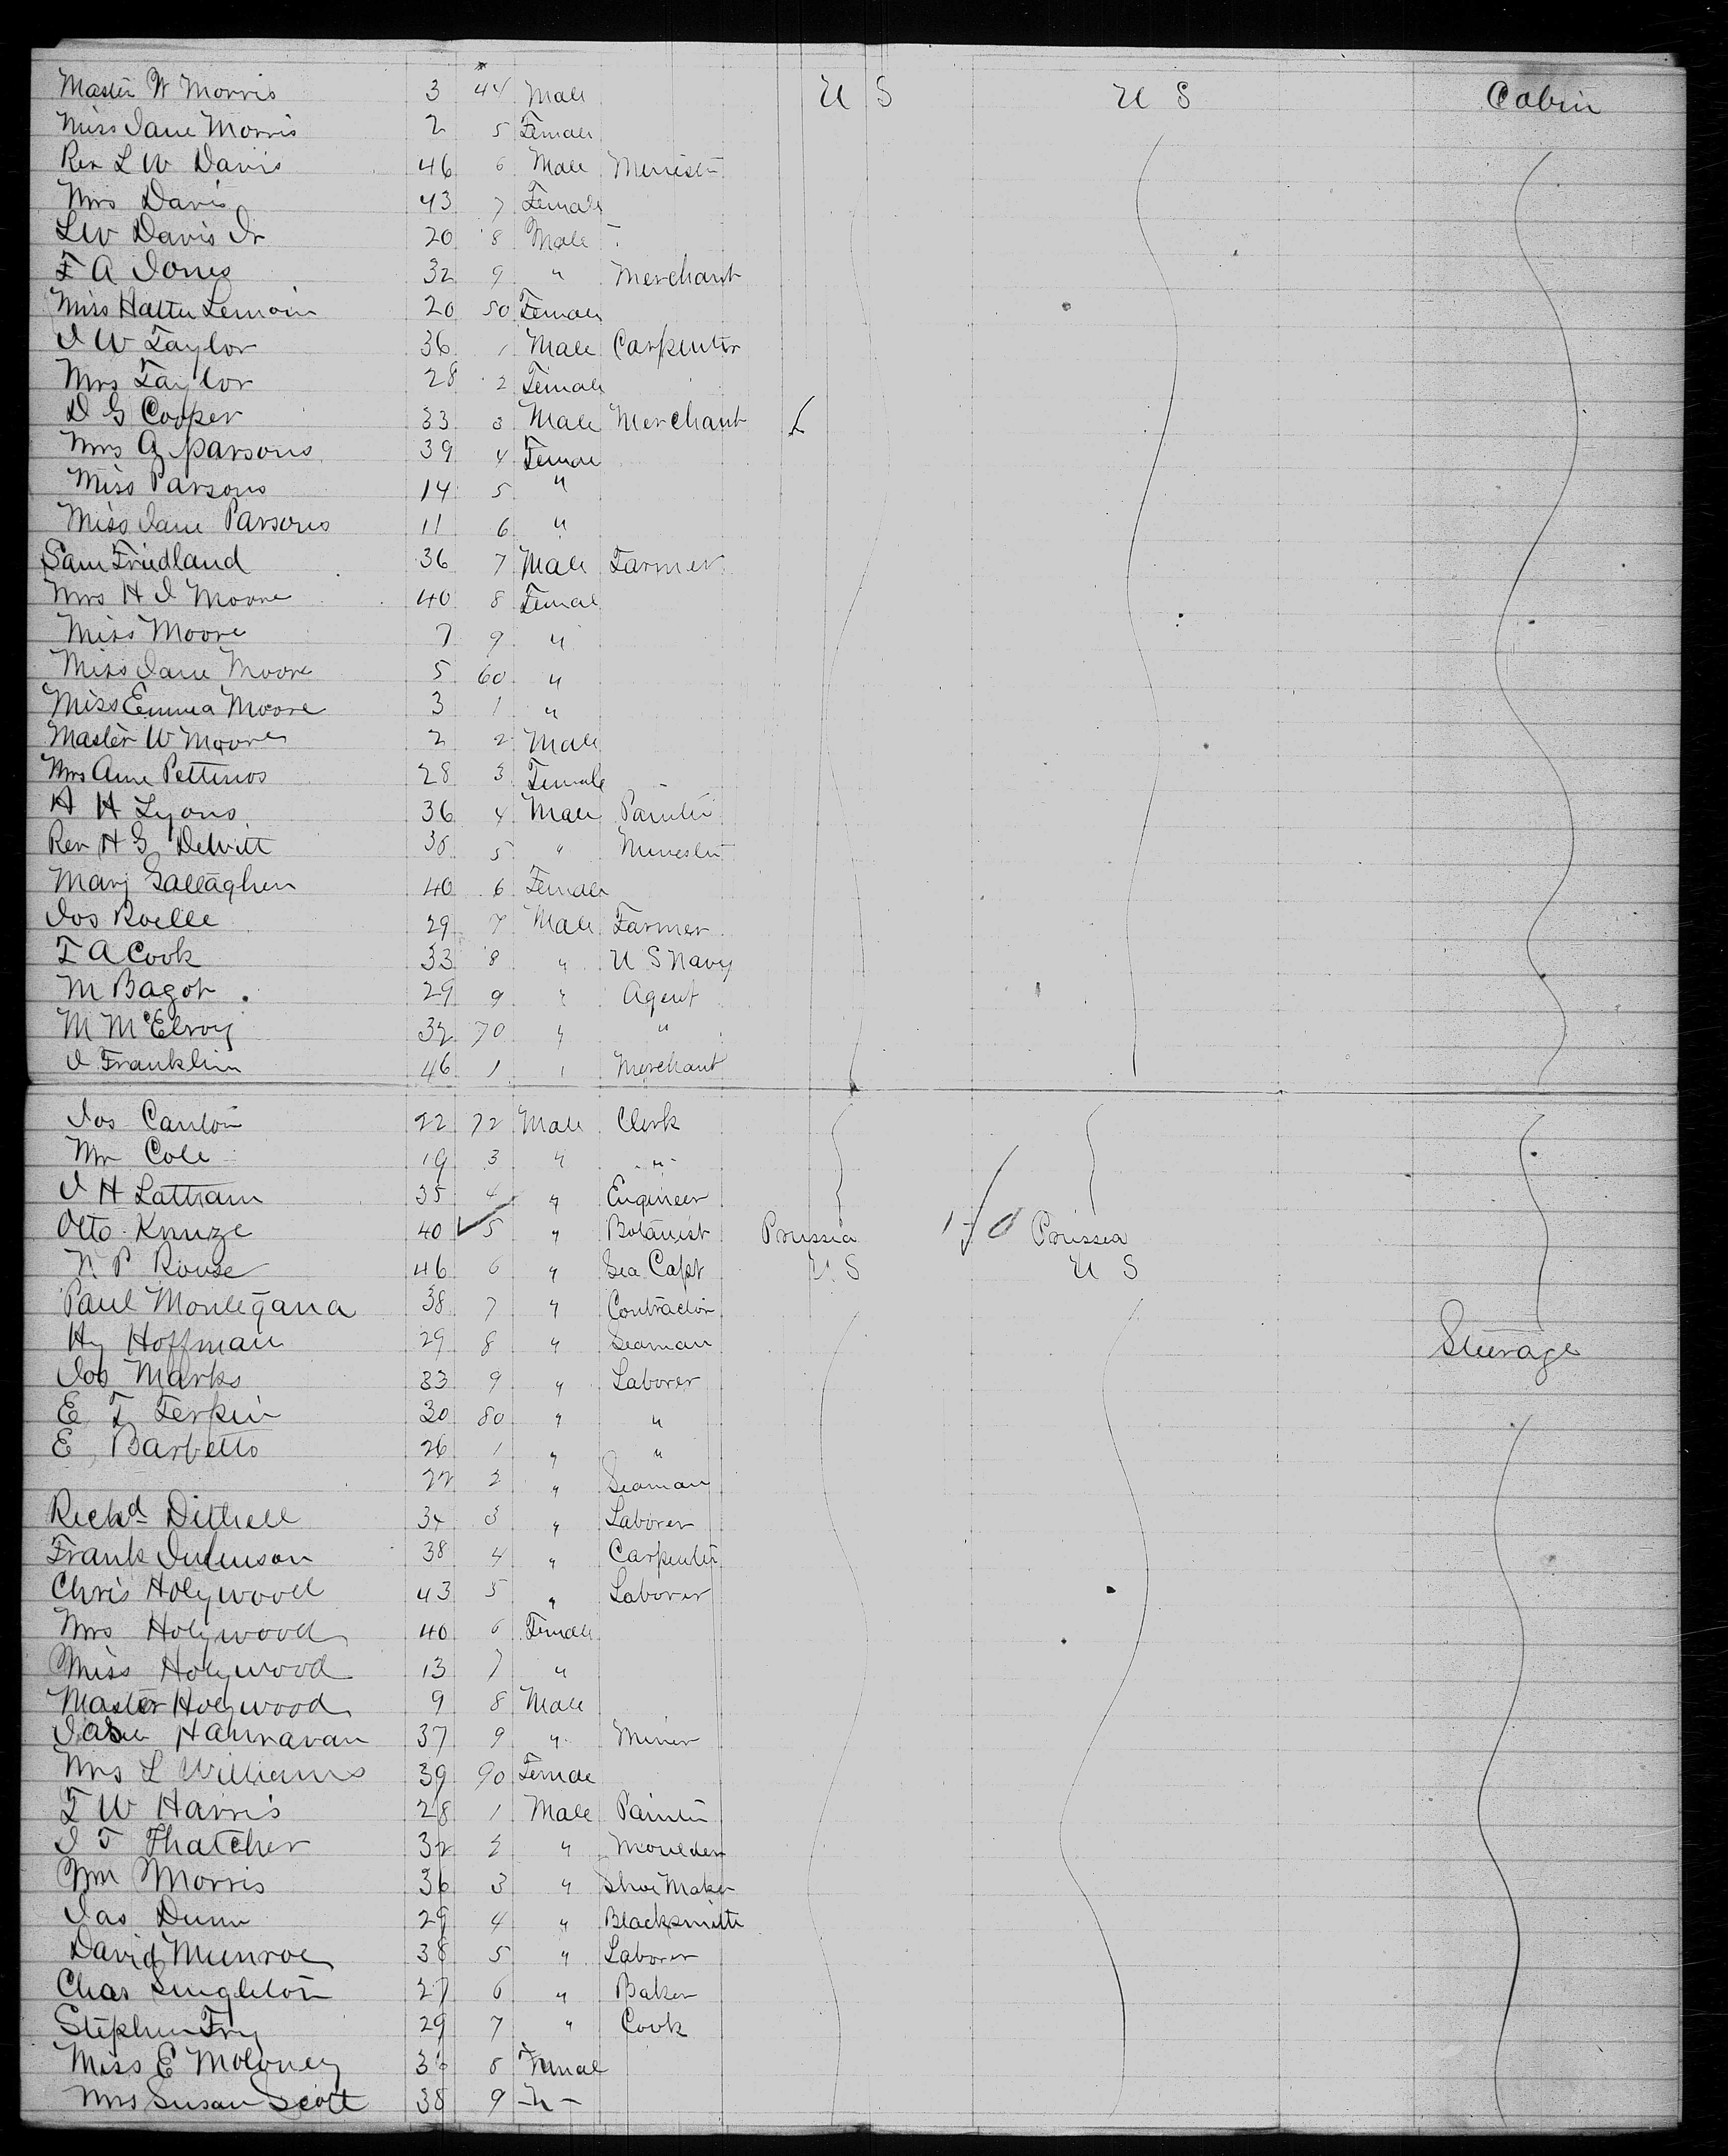 Master W Morris 3 44 Male U S U S Cabin
Miss Jane Morris 2 5 Female
Rev L W Davis 46 6 Male Minister
Mrs Davis 43 7 Female
L W Davis Jr 20 8 Male
F A Jones 32 9 " Merchant
Miss Hattie Lemoin 20 50 Female
J W Taylor 36 1 Male Carpenter
Mrs Taylor 28 2 Female
D G Cooper 33 3 Male Merchant
Mrs G Parsons 39 4 Female
Miss Parsons 14 5 "
Miss Jane Parsons 11 6 "
Sam Friedland 36 7 Male Farmer
Mrs H J Moore 40 8 Female
Miss Moore 7 9 "
Miss Jane Moore 5 60 "
Miss Emma Moore 3 1 "
Master W Moore 2 2 Male
Mrs Anne Pettinos 28 3 Female
A H Lyons 36 4 Male Painter
Rev H G DeWitt 38 5 " Minester
Mary Gallagher 40 6 Female
Jos Roelle 29 7 Male Farmer
T A Cook 33 8 " U S Navy
M Bagot 29 9 " Agent
M McElroy 32 70 " "
J Franklin 46 1 " Merchant
Jos Canton 22 72 Male Clerk
Mr Cole 19 3 " "
J H Lattram 35 4 " Engineer
Otto Knuze 40 5 " Botanist Prussia Prussia
N P Rouse 46 6 " Sea Capt U S U S
Paul Montegana 38 7 " Contractor
Hy Hoffman 29 8 " Seaman Steerage
Jos Marks 33 9 " Laborer
E T Terpin 30 80 " "
E Barbetto 26 1 " "
22 2 " Seaman
Richd Dittrell 34 3 " Laborer
Frank 38 4 " Carpenter
Chris Holywood 43 5 " Laborer
Mrs Holywood 40 6 Female
Miss Holywood 13 7 "
Master Holywood 9 8 Male
Hahnavan 37 9 " Miner
Mrs L Williams 39 90 Female
T W Harris 28 1 Male Painter
J T Thatcher 32 2 " Moulder
Wm Morris 36 3 " Shoe Maker
Jas Dunn 29 4 " Blacksmith
David Munroe 38 5 " Laborer
Chas Singleton 27 6 " Baker
Stephen Fry 29 7 " Cook
Miss E Moloney 36 8 Female
Mrs Susan Scott 38 9 - " -